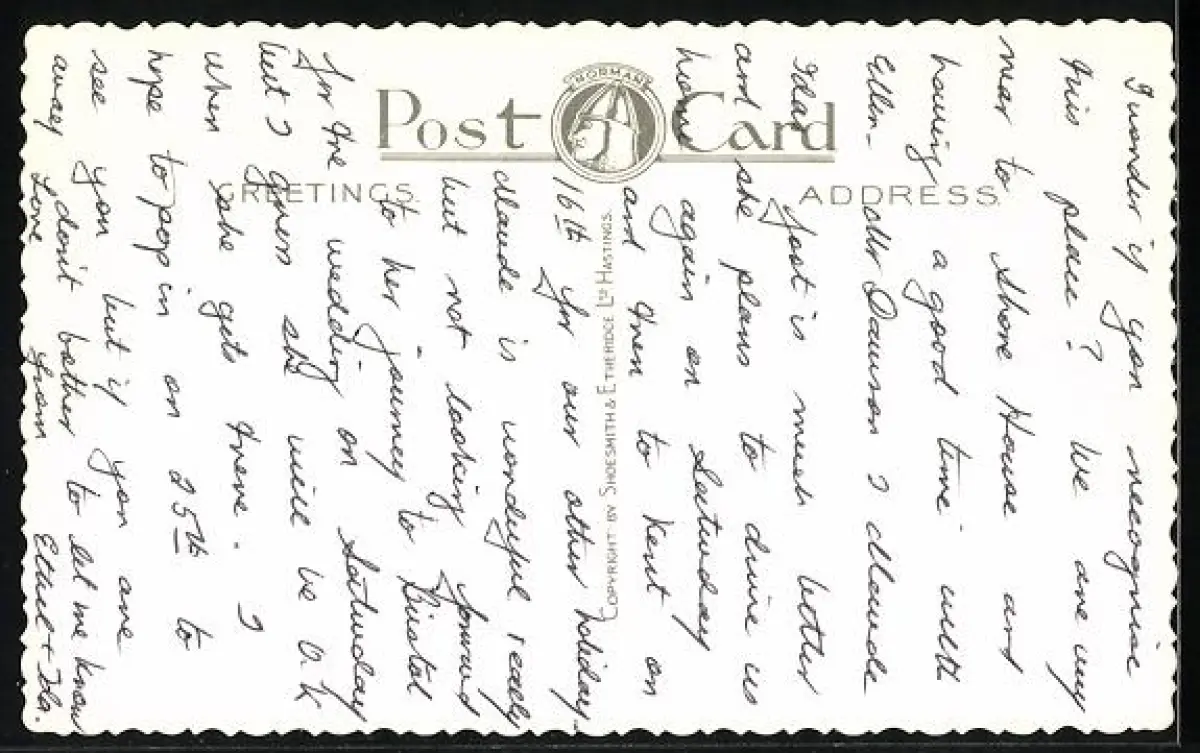 Post Card
NORMAN
GREETINGS.
ADDRESS.
COPYRIGHT BY SHOESMITH & ETHERIDGE LTD HASTINGS.
I wonder if you recognise
this place? We are very
near to Shore House and
having a good time with
Ellen - Mr Dawson & Maude
Ida's foot is much better
and she plans to drive us
home again on Saturday
and then to Kent on
16th for our other holiday.
Maude is wonderful really
but not looking forward
to her journey to Bristol
for the wedding on Saturday
but I guess she will be O.K
when she gets there. I
hope to pop in on 25th to
see you but if you are
away don't bother to let me know
Love from Ethel +